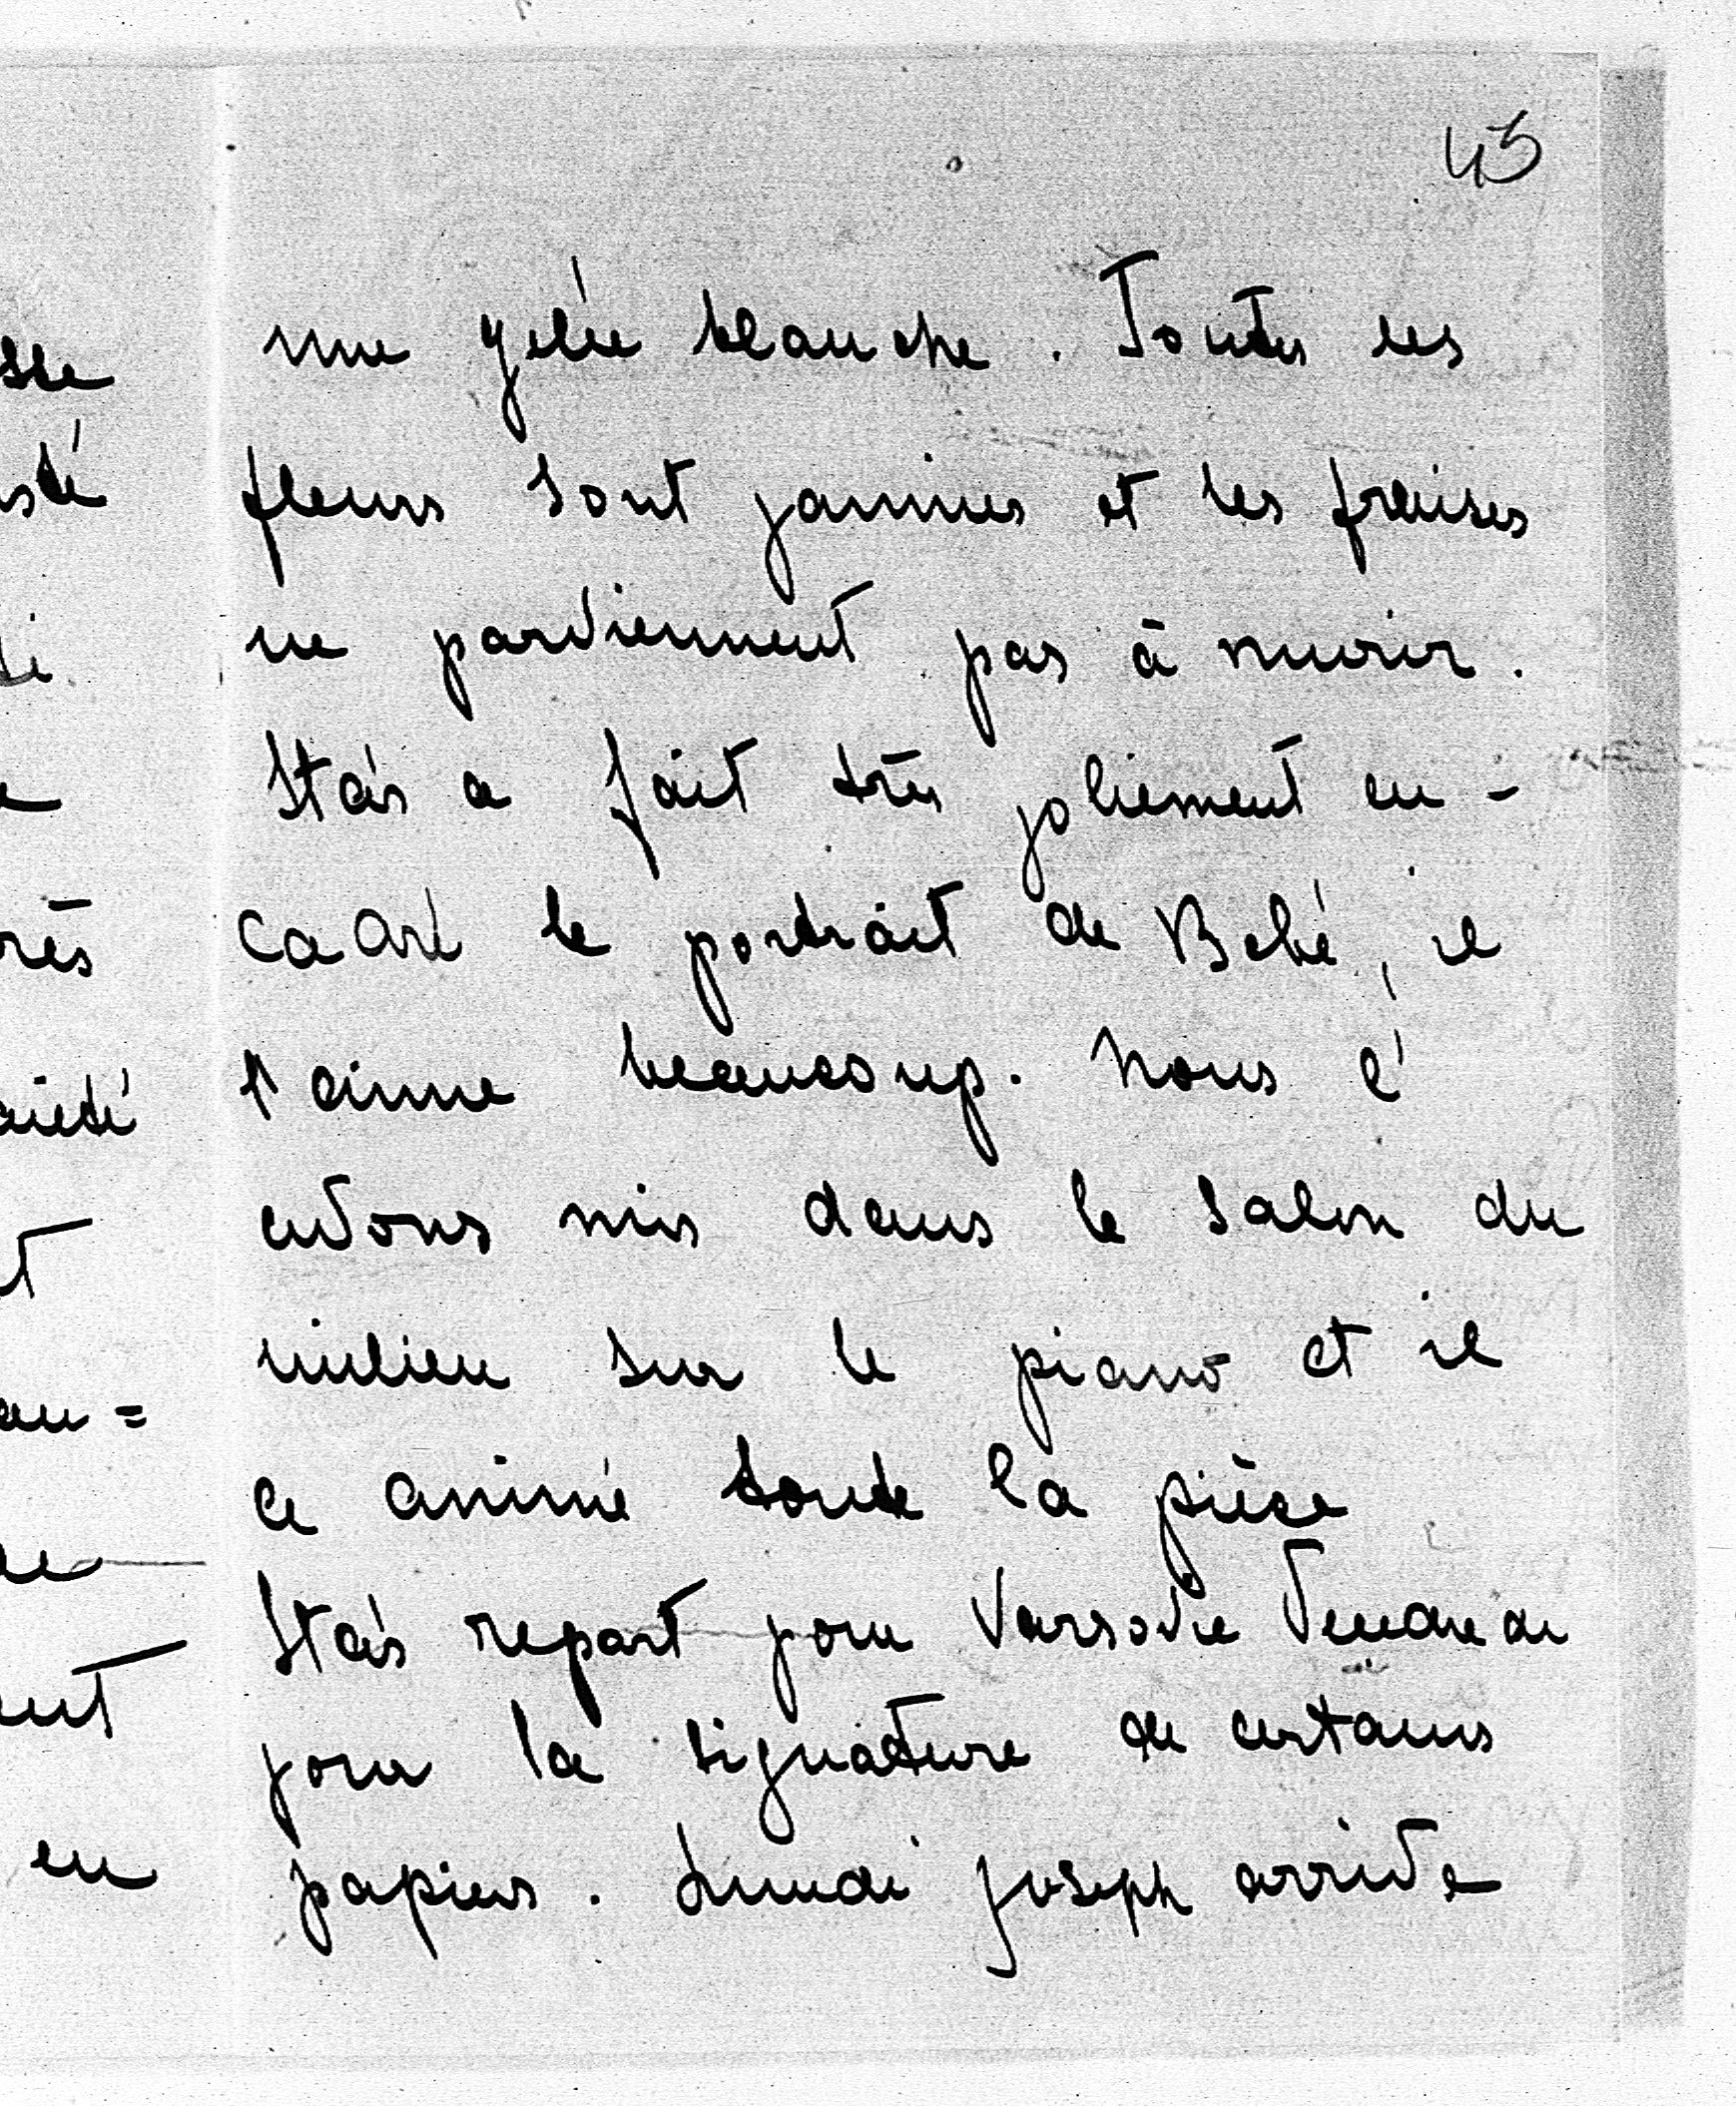 43
une gelée blanche. Toutes les
fleurs sont jaunies et les fraises
ne parviennent pas à murir.
Staś a fait très joliement en-
cadré le portrait de Bébé, il
t'aime beaucoup. Nous l'
avons mis dans le salon du
milieu sur le piano et il
a animé toute la pièce
Staś repart pour Varsovie
pour la signature de certains
papiers. Lundi Joseph arrive
sse
sté
di
e
rès
aieté
t
au=
de
ent
en